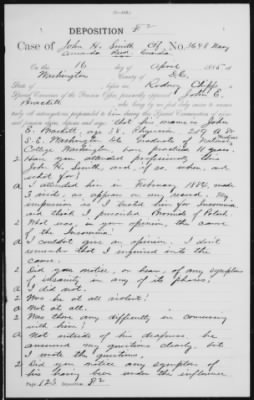 DEPOSITION 82
Case of John H. Smith Cpl., No. 1698 Navy
Amanda
On this 16 day of April 1885, at
Washington County of D.C.
State of before me, Rodney
Special Examiner of the Pension Office, personally appeared John E.
Brackett who being by me first duly sworn to answer
truly all interrogatories propounded to him during this Special Examination
that his name is John
E. Brackett, age 38, Physician, 219 A St
S.E. Washington D.C. Graduate of
College Washington, been practicing 11 years.
Q Have you attended professionally this
John H. Smith, and if so, when and
what for?
A I attended him in February 1882, made
3 visits as appears on my record. My
impression is I treated him for Insomnia
and think I prescribed Bromide of Potash.
Q What was, in your opinion, the cause
of the Insomnia?
A I couldn't give an opinion. I don't
remember that I inquired into the
cause.
Q Did you notice, or hear, of any symptoms
of insanity in any of its phases,
A I did not.
Q Was he at all violent?
A Not at all.
Q Was there any difficulty in conversing
with him?
A Not outside of his deafness. he
answered my questions clearly but
I wrote the questions.
Q Did you notice any symptom of
his having been under the influence
Page 123 Deposition 82